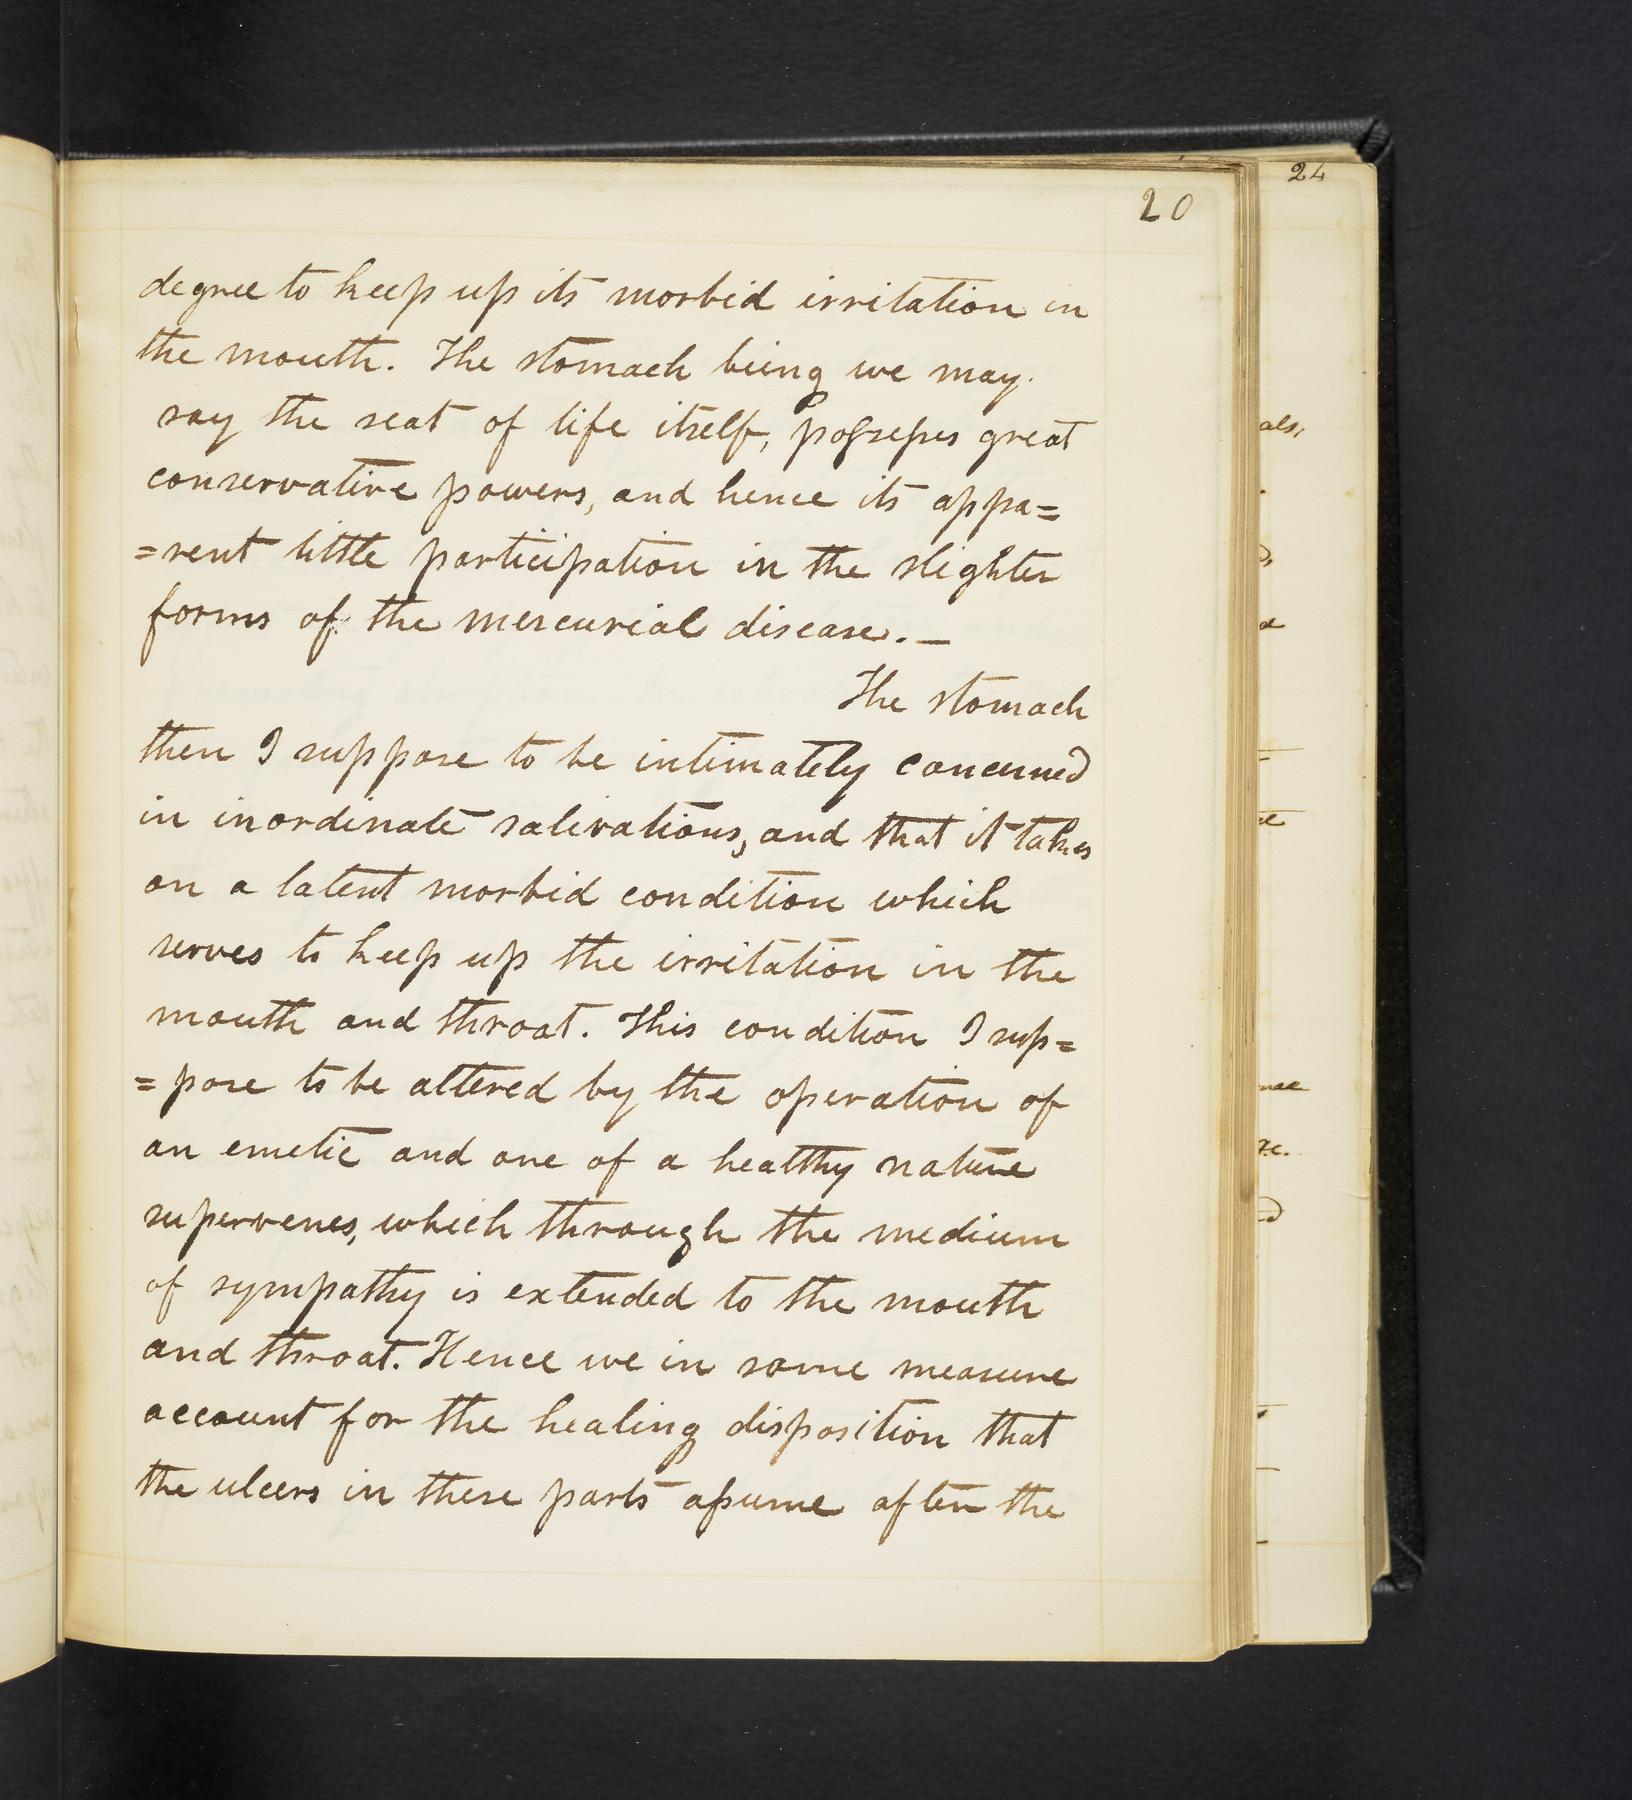 20
degree to keep up its morbid irritation in
the mouth. The stomach being we may.
say the seat of life itself, possesses great
conservative powers, and hence its appa=
=rent little participation in the slighter
forms of the mercurial disease. —
The stomach
then I suppose to be intimately concerned
in inordinate salivations, and that it takes
on a latent morbid condition which
serves to keep up the irritation in the
mouth and throat. This condition I sup=
=pose to be altered by the operation of
an emetic and one of a healthy nature
supervenes, which through the medium
of sympathy is extended to the mouth
and throat. Hence we in some measure
account for the healing disposition that
the ulcers in these parts assume after the
24
als,
&c.